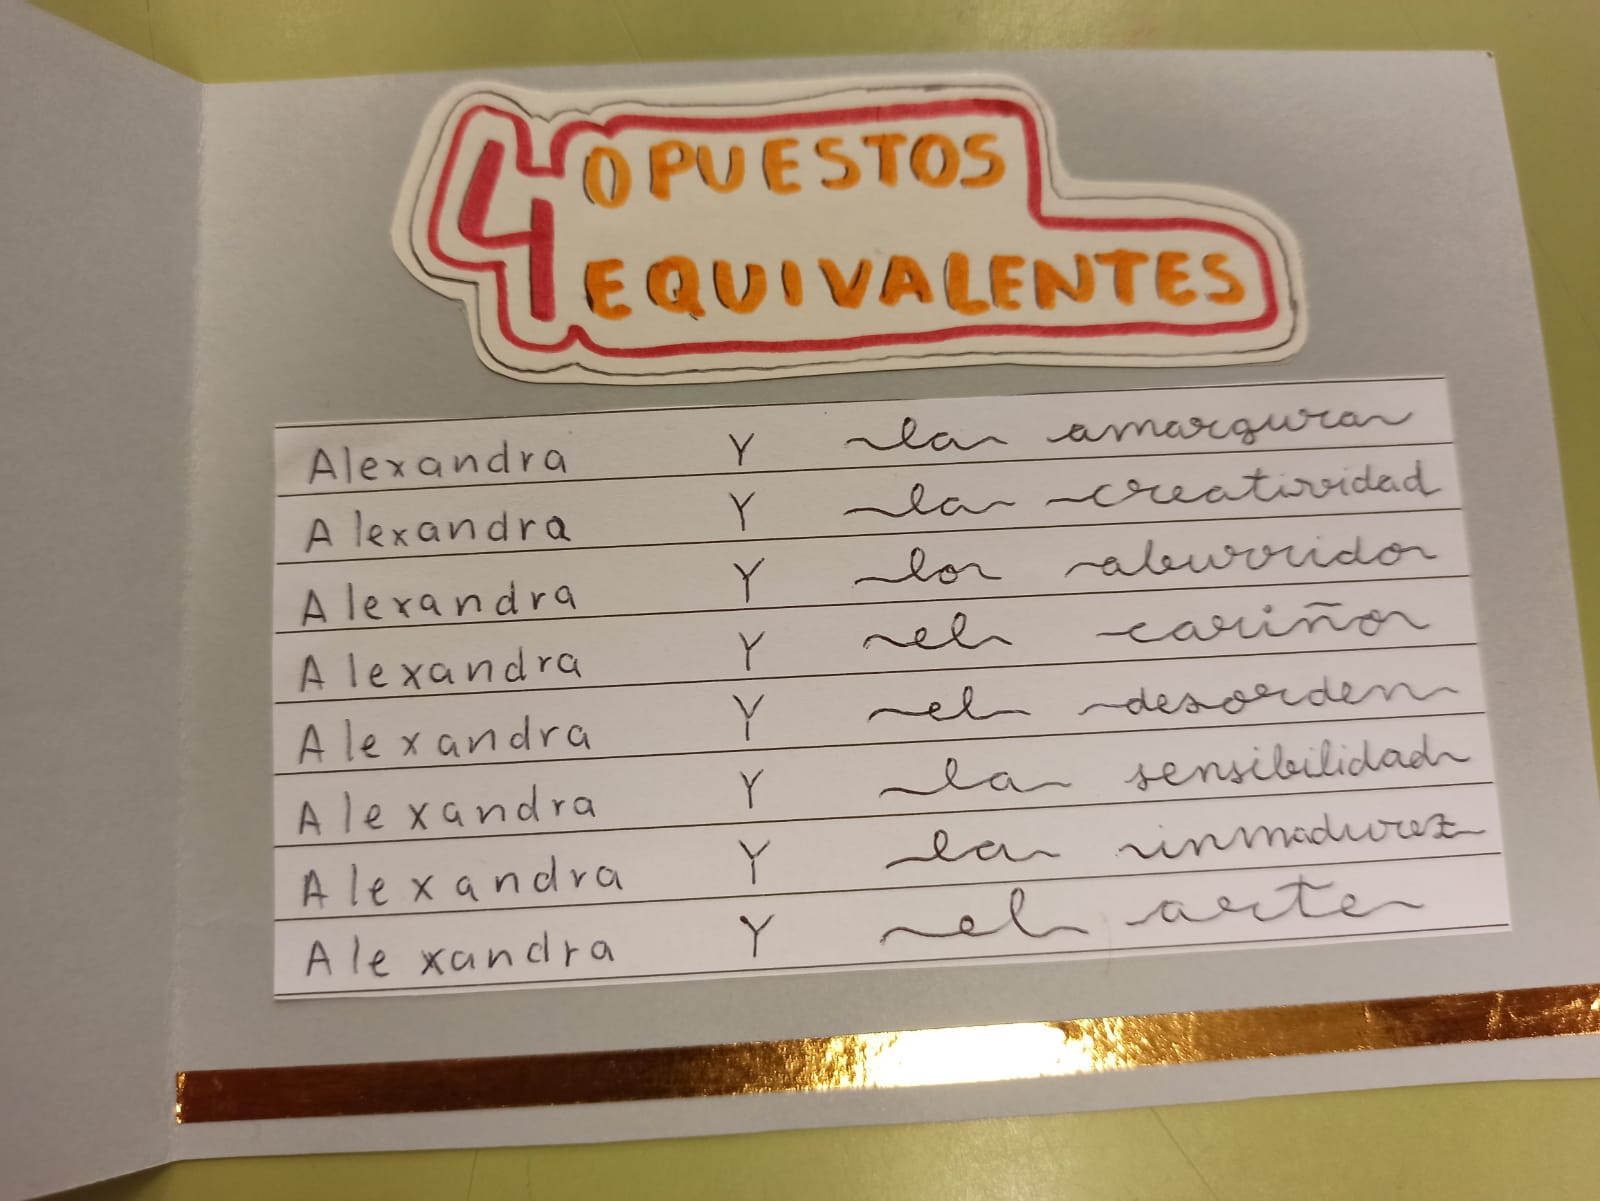 4 OPUESTOS
EQUIVALENTES
Alexandra Y la amargura
Alexandra Y la creatividad
Alexandra Y lo aburrido
Alexandra Y el cariño
Alexandra Y el desorden
Alexandra Y la sensibilidad
Alexandra Y la inmadurez
Alexandra Y el arte